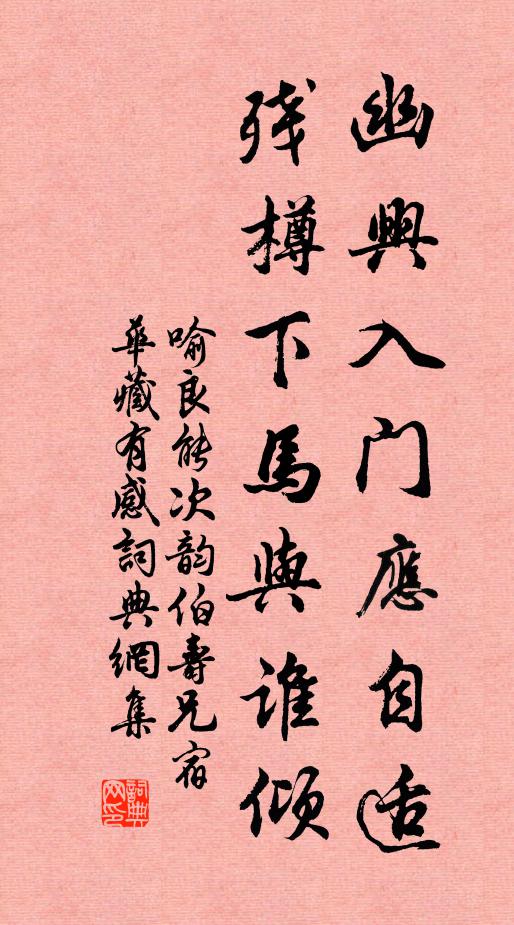 幽興入门應自适
残樽下馬與誰倾
喻良能次韵伯壽兄宿
華藏有感詞典網集
詞典网印